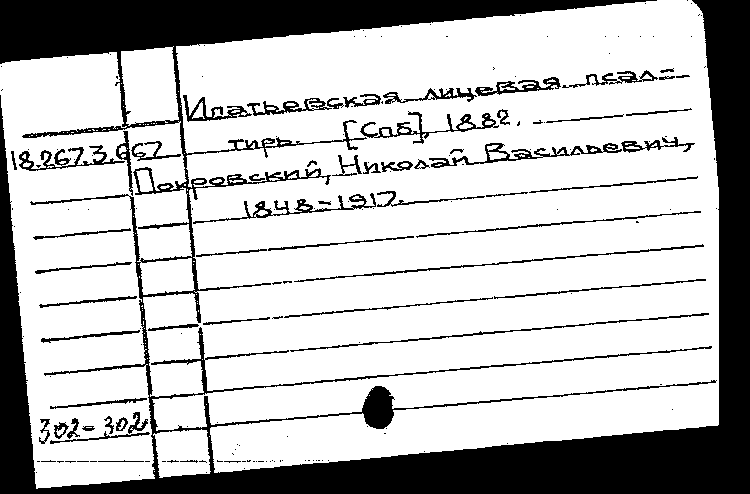 Ипатьевская лицевая псал=
18.267.3.667 тирь. [Спб], 1882.
Покровский, Николай Васильевич,
1848-1917.
302-302